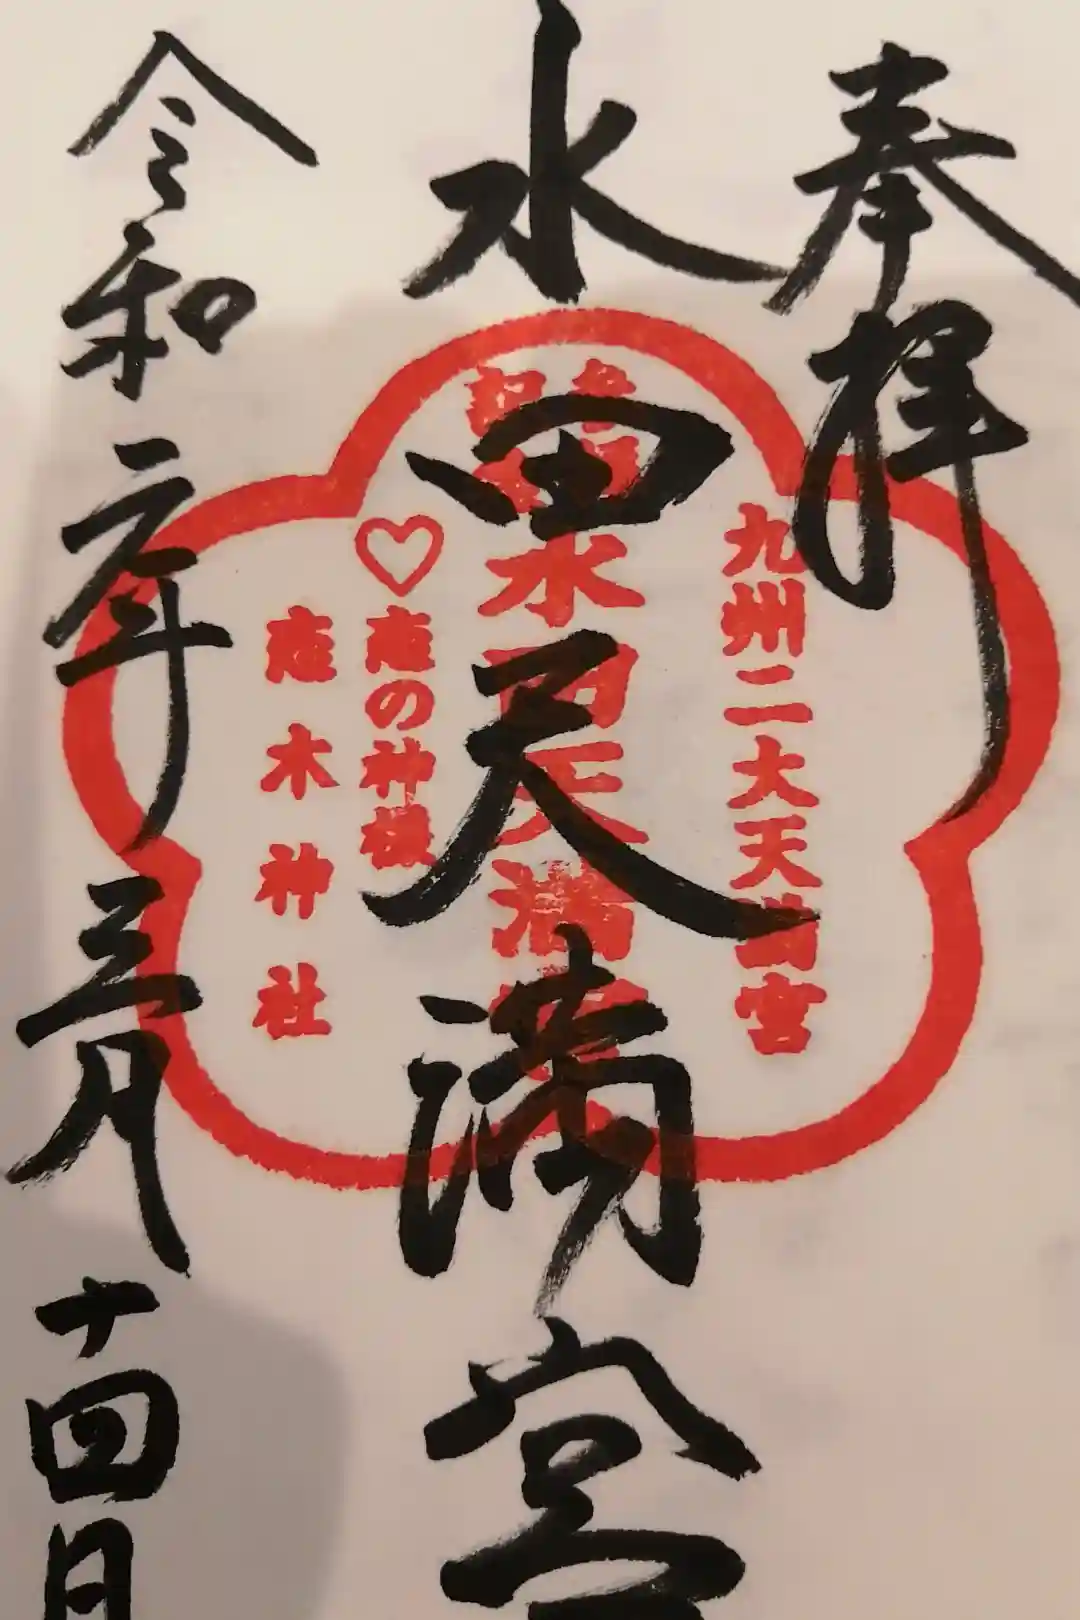 奉拝
水田天満宮
令和二年三月十四日
九州二大天満宮
水田天満宮
♡恋の神様
恋木神社